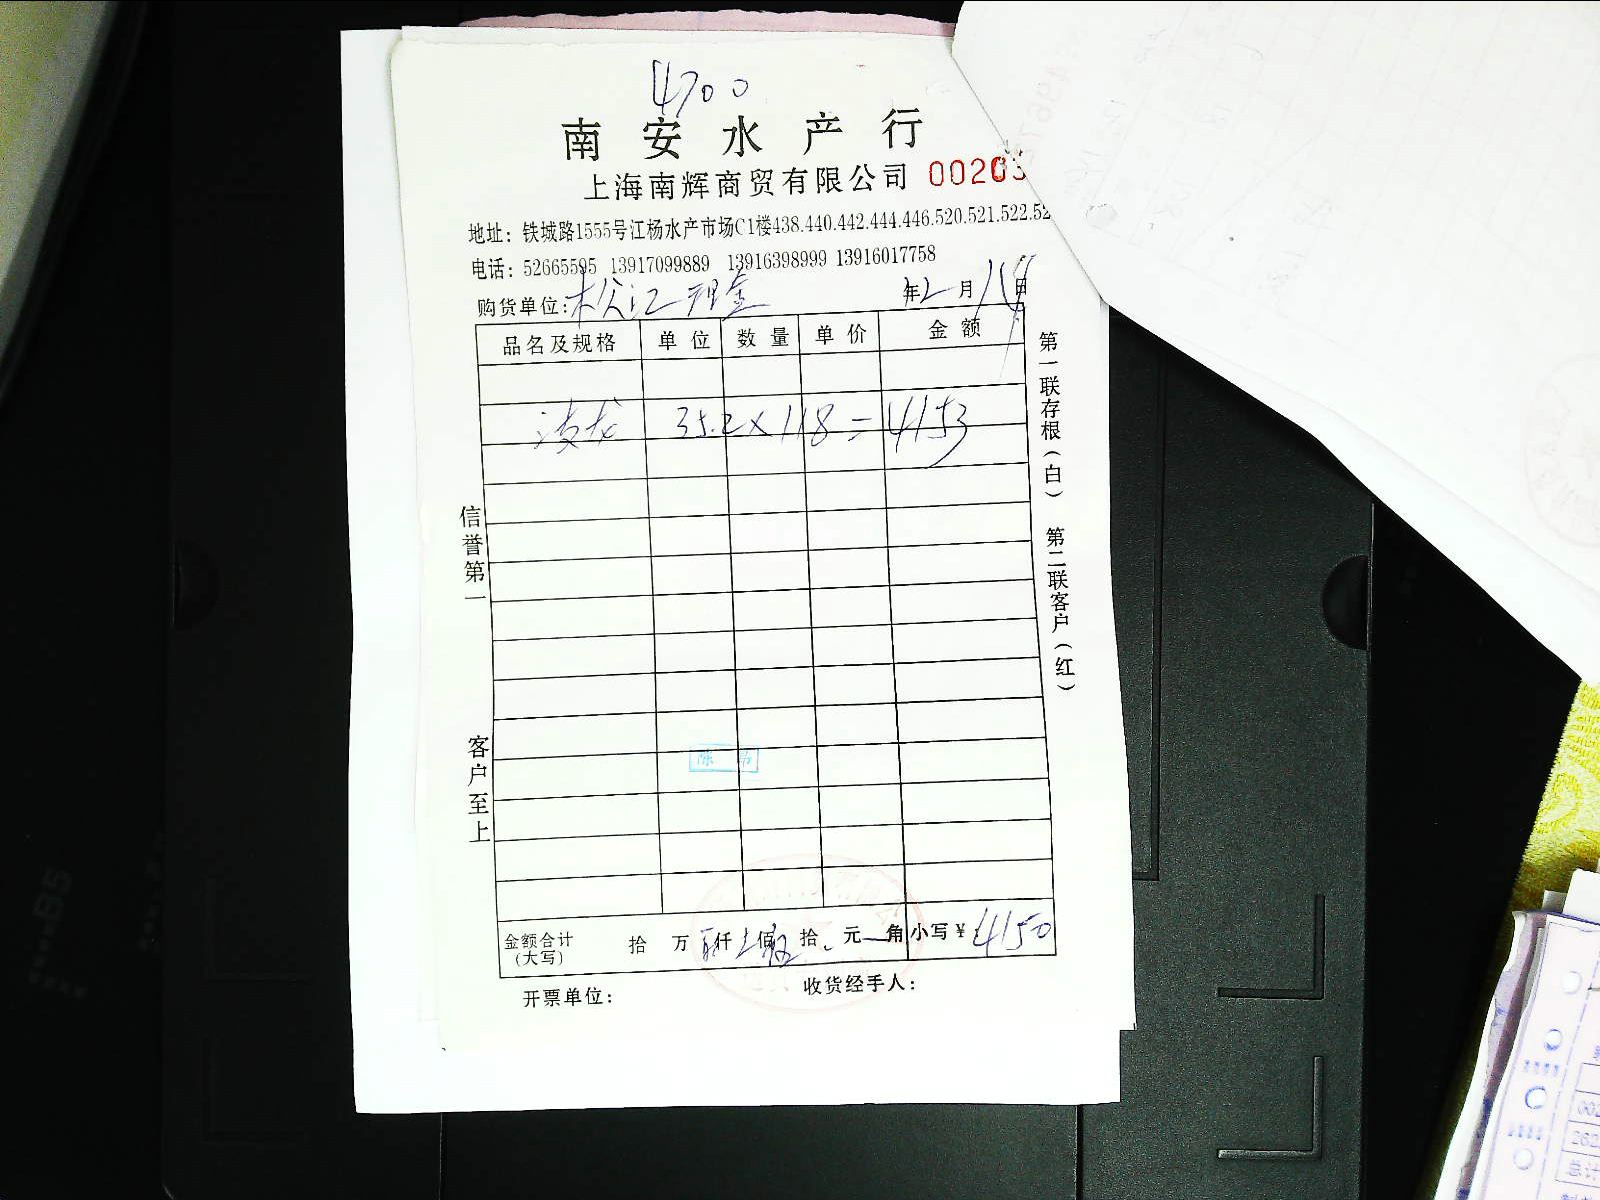 4700
南安水产行
上海南辉商贸有限公司 00203
地址：铁城路1555号江杨水产市场C1楼438.440.442.444.446.520.521.522.52
电话：52665595 13917099889 13916398999 13916017758
购货单位：松江 年2月18日
品名及规格 单位 数量 单价 金额
35.2×118=4153
信誉第一
客户至上
第一联存根（白） 第二联客户（红）
陈
金额合计（大写） 拾 万 仟 佰 拾 元 角 小写￥：4150
开票单位： 收货经手人：
B5